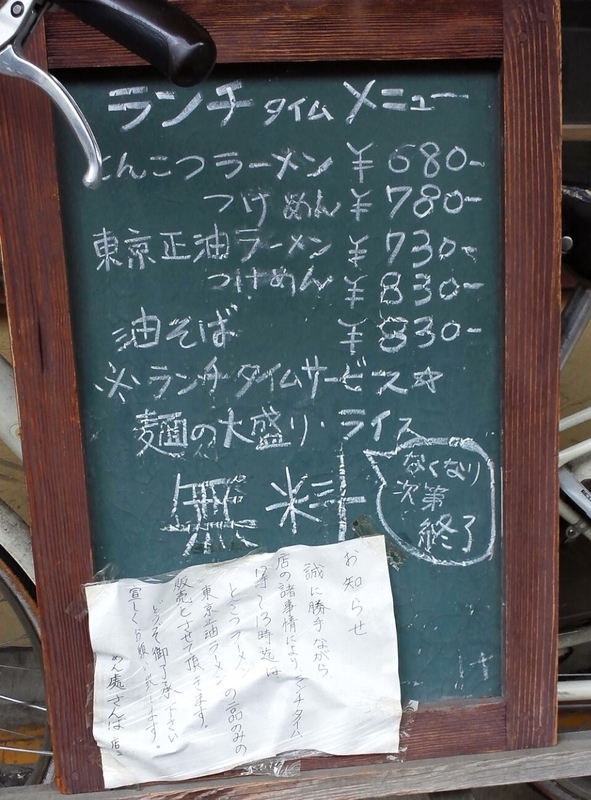 ランチタイムメニュー
とんこつラーメン ¥680-
つけめん ¥780-
東京正油ラーメン ¥730-
つけめん ¥830-
油そば ¥830-
※ランチタイムサービス☆
麺の大盛り・ライス
無料
なくなり
次第
終了
お知らせ
誠に勝手ながら
店の諸事情によりランチタイム
12時〜13時迄は
とんこつラーメン
東京正油ラーメン の二品のみの
販売とさせて頂きます。
どうぞ御了承下さい
宜しくお願い致します。
めん処